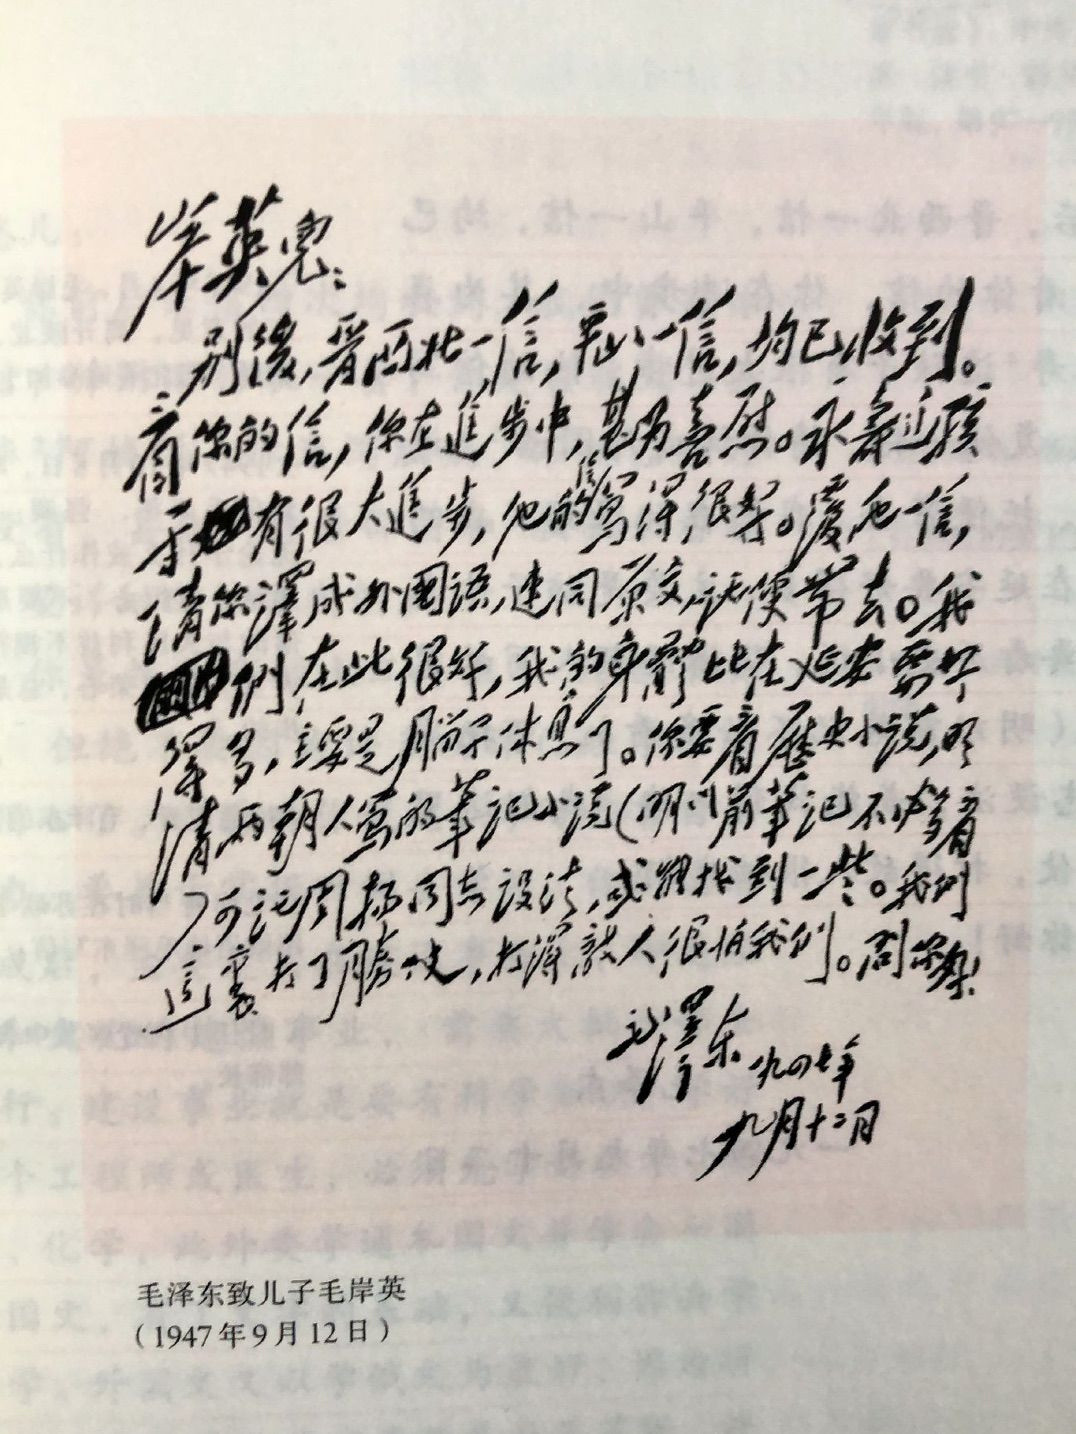 岸英兒：
别後，晋西北一信，平山一信，均已收到。
看你的信，你在進步中，甚为喜慰。永寿这孩
子有很大進步，他的信写得很好。復他一信，
請你譯成外國語，連同原文，託便带去。我
們在此很好，我的身體比在延安要好
得多，主要是脑子休息了。你要看歷史小说，明
清两朝人写的筆记小说（明以前筆记不必多看
）可託周扬同志設法，或能找到一些。我們
這裏打了勝仗，打得敵人很怕我們。問你好！
毛澤东 一九四七年
九月十二日
毛泽东致儿子毛岸英
（1947年9月12日）